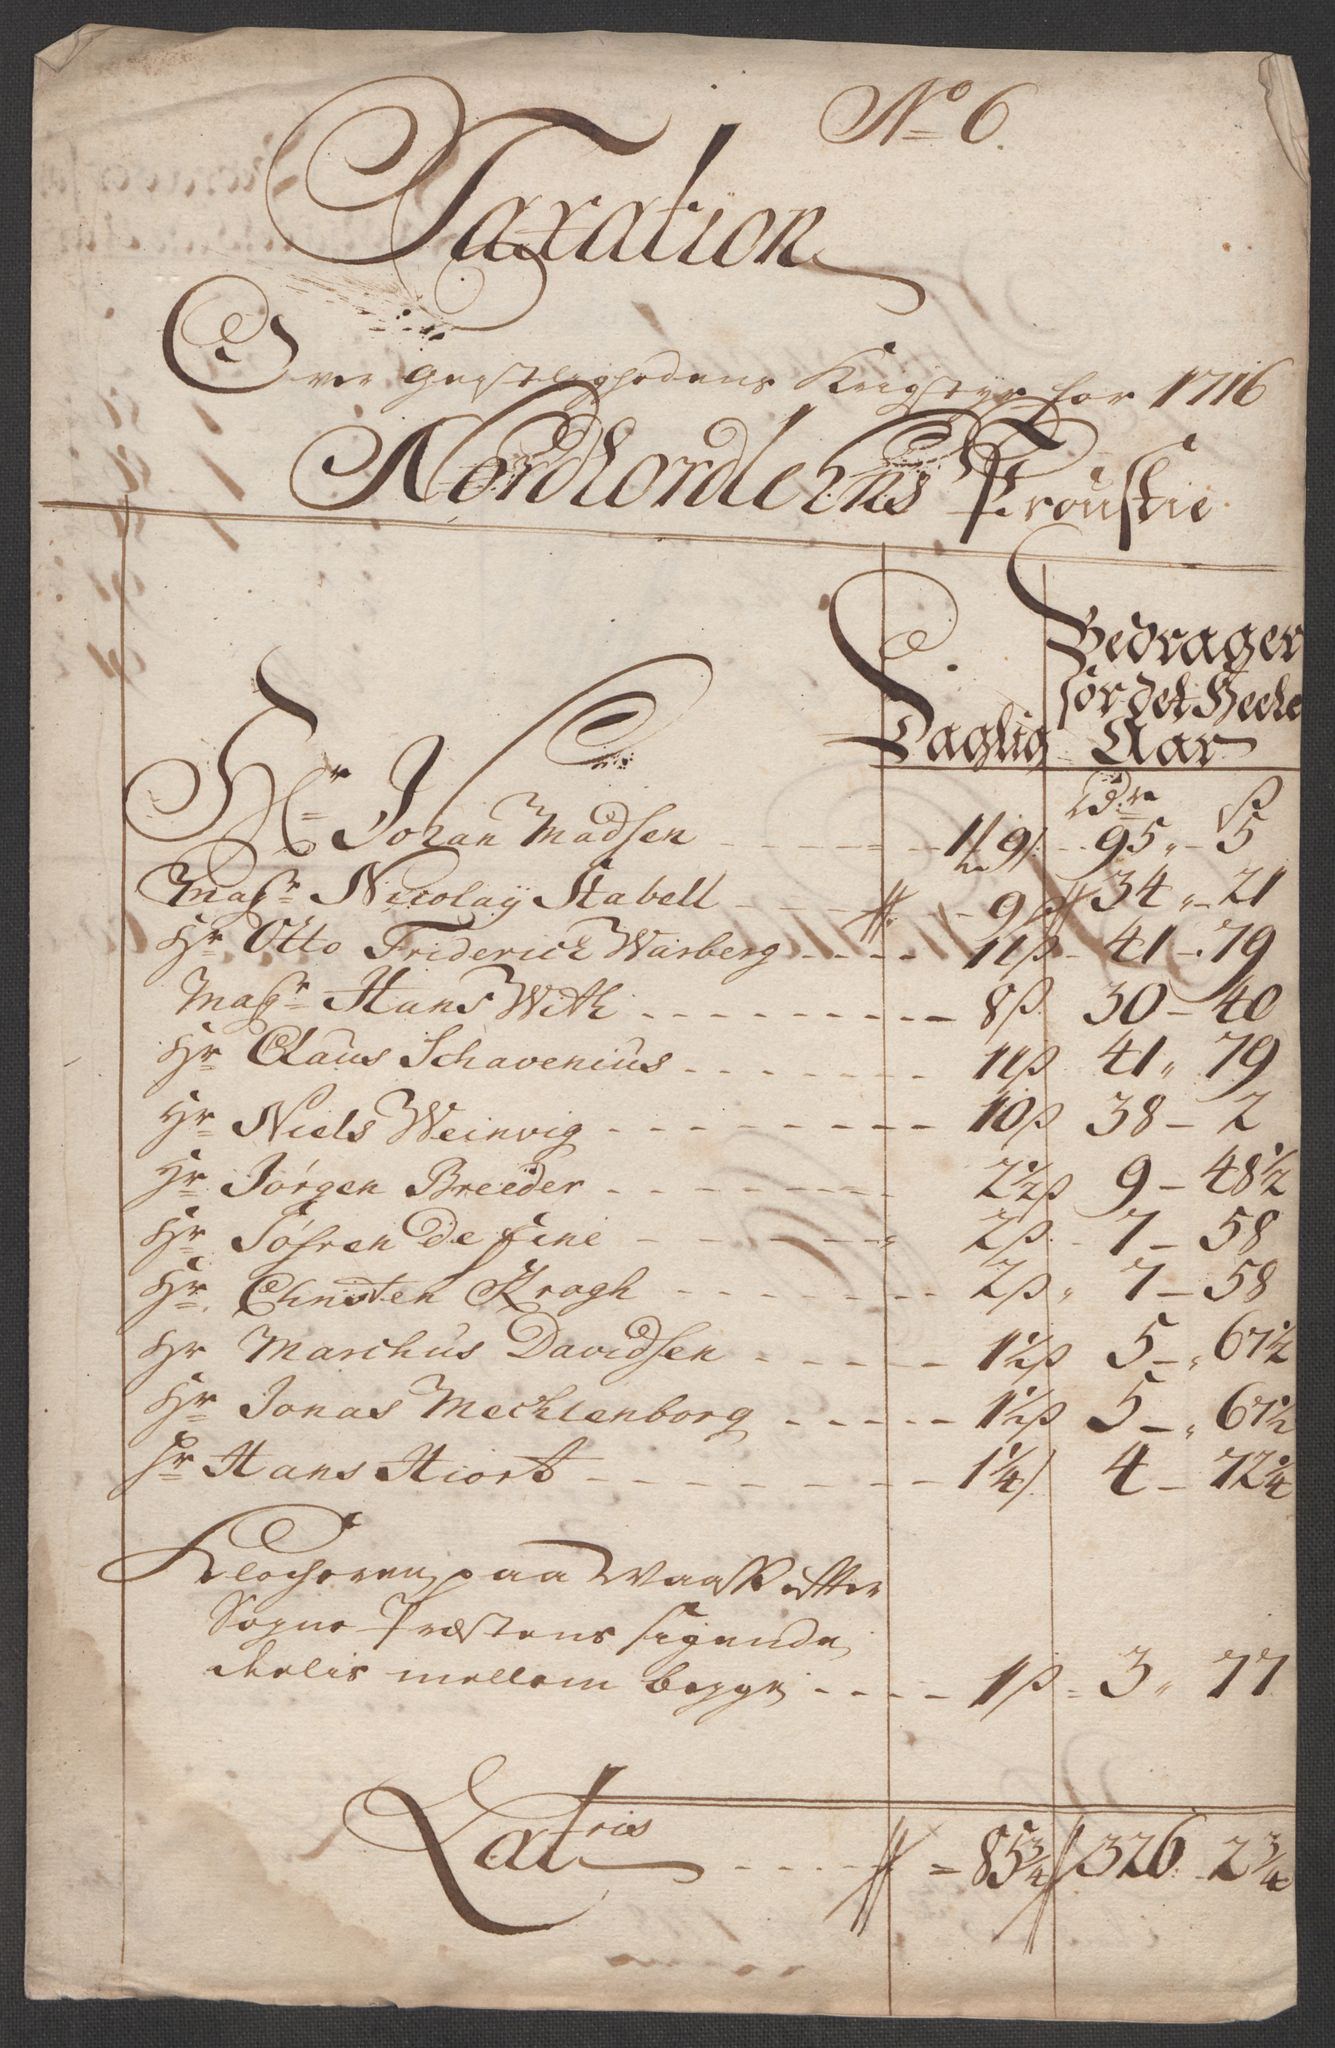 No 6.
Taxation
Over Geistlighedens Krigstyr for 1716
Nordhordlehns Proustie
Daglig
Bedrager
for det Heele
Aar
dr ß
Hr Johan Madsen 95 " 5
Magr Nicolaÿ Stabell 9 ß 34 " 21
Hr Otto Friderich Warberg 11 ß 41 - 79
Magr Hans With 8 ß 30 - 40
Hr Claus Schavenius 11 ß 41 " 79
Hr Niels Weinvig 10 ß 38 - 2
Hr Jørgen Breeder 2½ ß 9 - 48½
Hr Søfren de fine 2 ß 7 - 58
Hr Christen Kragh 2 ß 7 - 58
Hr Marchus Davidsen 1½ ß 5 - 67½
Hr Jonas Mechlenborg 1½ ß 5 - 67½
Hr Hans Hiort 1¼ ß 4 - 72¼
Klocheren paa Waas efter
Sogne Præstens sigende
deelis mellem begge 1 ß 3 " 77
Latris 85¾ 326 2¾